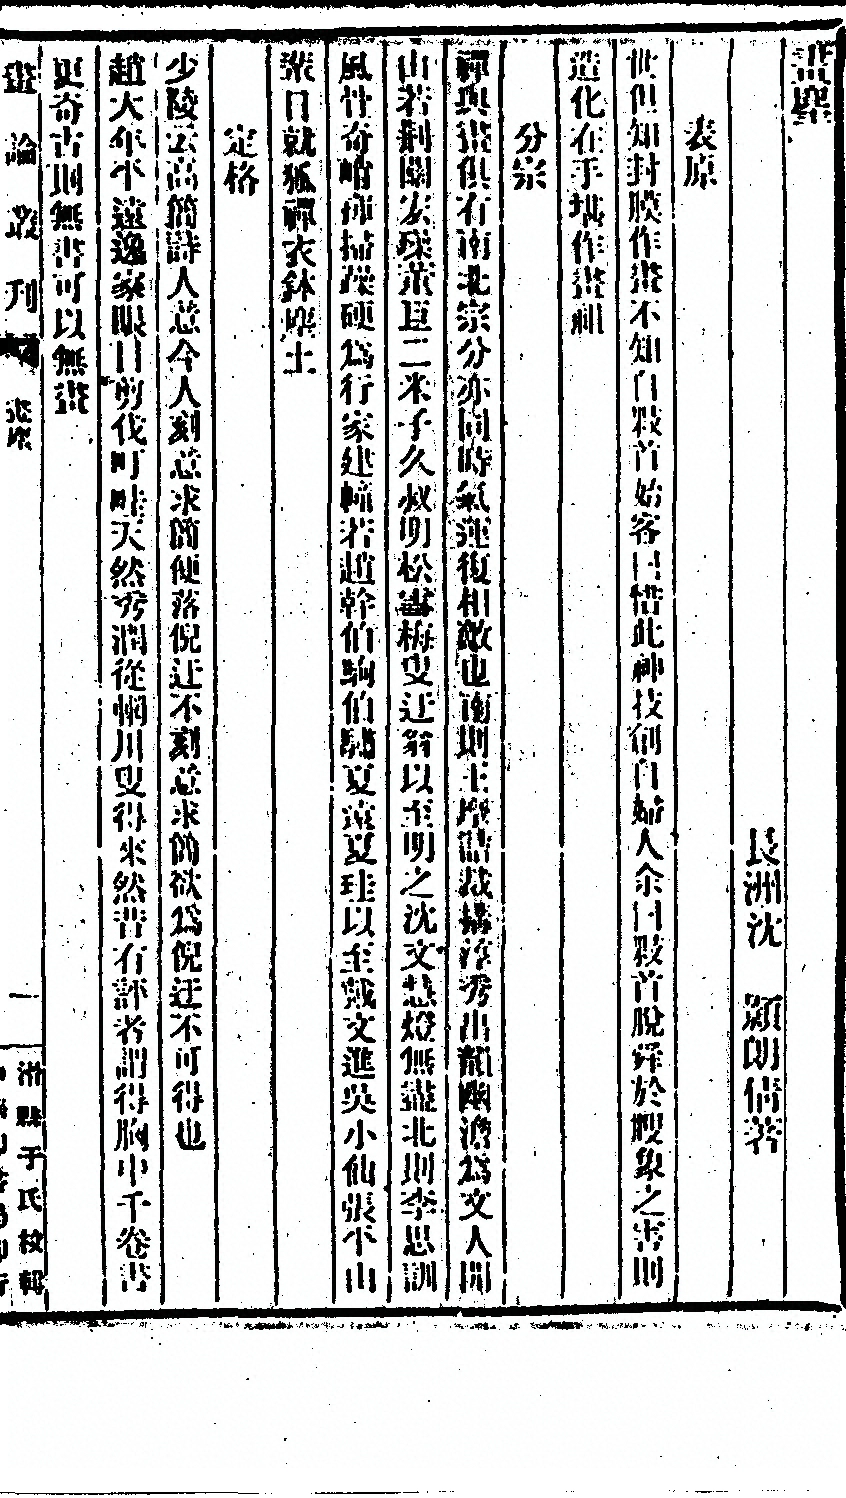 畫麈
長洲沈　顥朗倩著
表原
世但知封膜作畫不知自敤首始客曰惜此神技創自婦人余曰敤首脫舜於瞍象之害則
造化在手堪作畫祖
分宗
禪與畫俱有南北宗分亦同時氣運復相敵也南則王摩詰裁搆淳秀出韻幽澹爲文人開
山若荆關宏璪董巨二米子久叔明松雪梅叟迂翁以至明之沈文慧燈無盡北則李思訓
風骨奇峭揮掃躁硬爲行家建幢若趙幹伯駒伯驌夏遠夏珪以至戴文進吳小仙張平山
輩日就狐禪衣鉢塵土
定格
少陵云高簡詩人意今人刻意求簡便落倪迂不刻意求簡欲爲倪迂不可得也
趙大年平遠逸家眼目剪伐町畦天然秀潤從輞川叟得來然昔有評者謂得胸中千卷書
更奇古則無書可以無畫
畫論叢刊　表原　一
滑縣于氏校輯